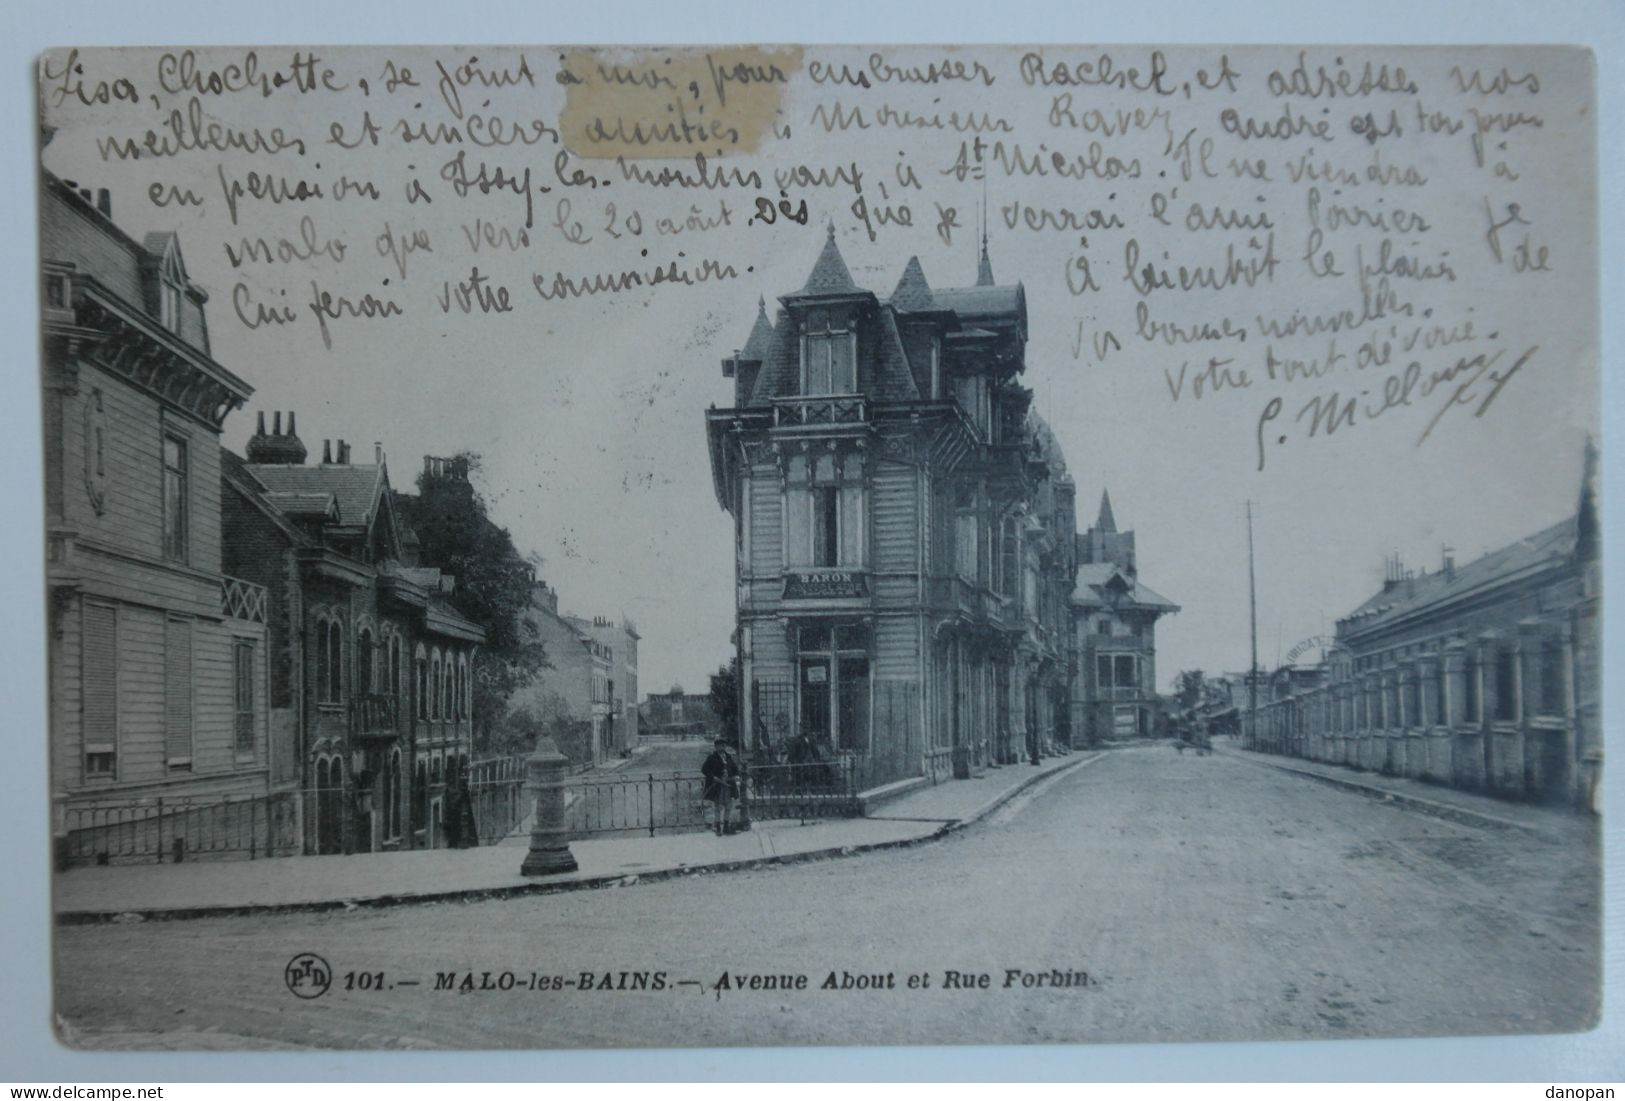 Lisa, Chochotte, se joint à moi, pour embrasser Rachel, et adresser nos
meilleures et sincères amitiés à Monsieur Ravez. André est toujours
en pension à Issy-les-Moulineaux, à St Nicolas. Il ne viendra à
Malo que vers le 20 août. Dès que je verrai l'ami Poirier je
lui ferai votre commission. À bientôt le plaisir de
vos bonnes nouvelles.
Votre tout dévoué.
G. Millou
BARON
PTD 101.— MALO-les-BAINS.— Avenue About et Rue Forbin.
delcampe.net
danopan